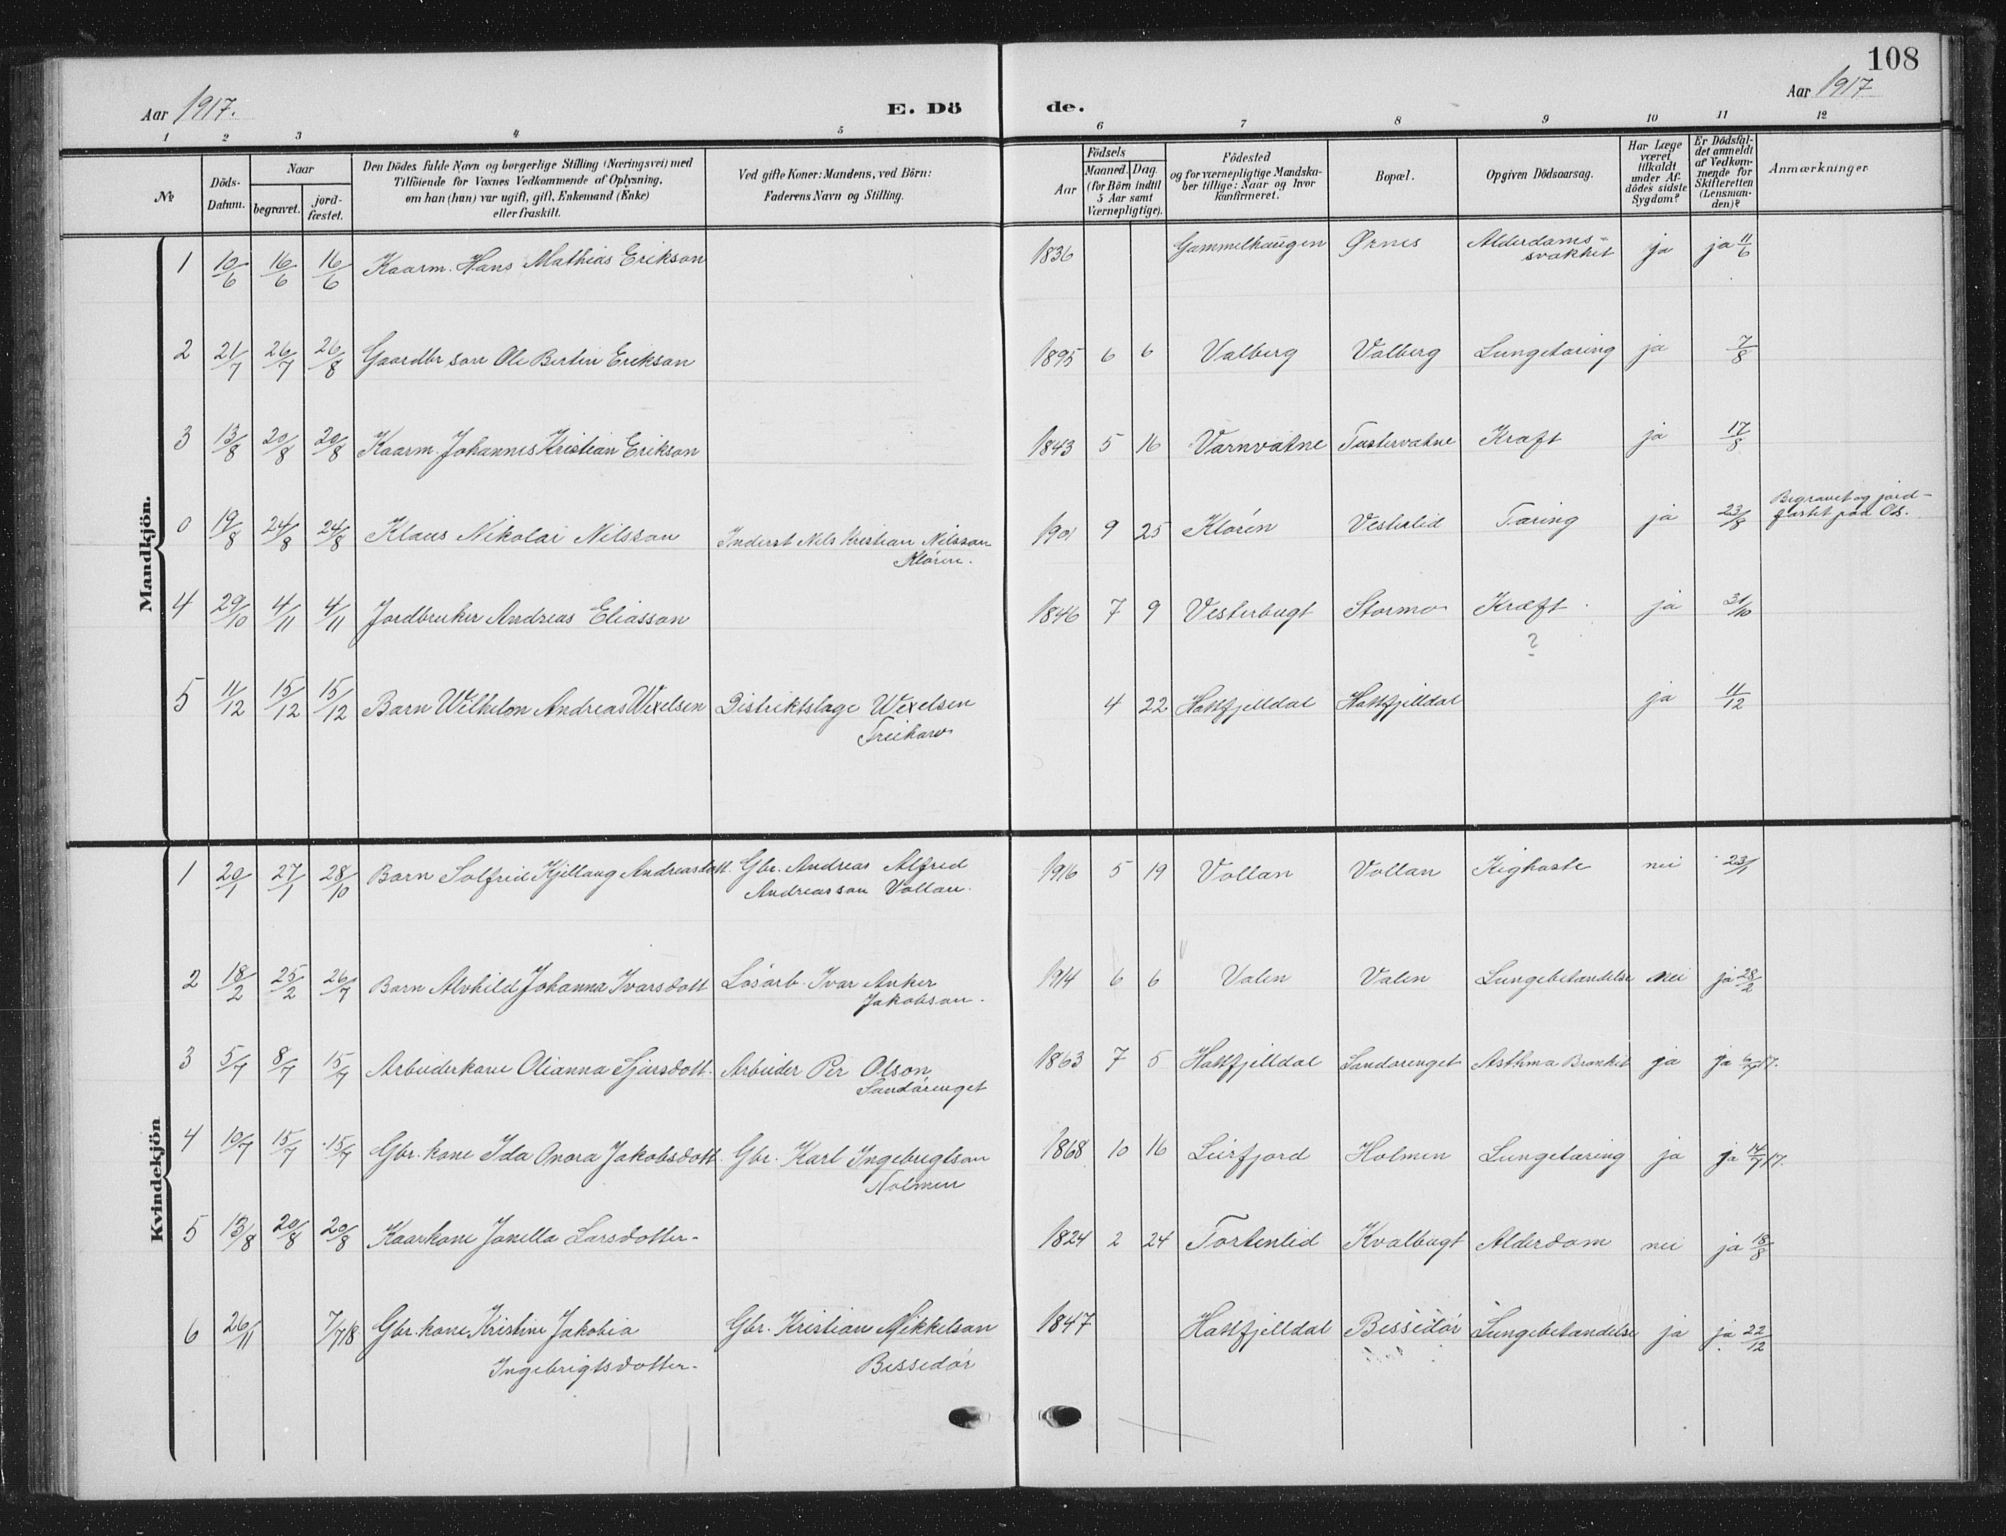 108
Aar 1917.
E. Dö
de.
Aar 1917
1 2 3 4 5 6 7 8 9 10 11 12
№
Döds-
Datum.
Naar
begravet.
jord-
fæstet.
Den Dödes fulde Navn og borgerlige Stilling (Næringsvei) med
Tilföiende for Voxnes Vedkommende af Oplysning,
om han (hun) var ugift, gift, Enkemand (Enke)
eller fraskilt.
Ved gifte Koner: Mandens, ved Börn:
Faderens Navn og Stilling.
Födsels
Aar
Maaned.
Dag.
(for Börn indtil
5 Aar samt
Værnepligtige).
Födested
og for værnepligtige Mandska-
ber tillige: Naar og hvor
konfirmeret.
Bopæl.
Opgiven Dödsaarsag.
Har Læge
været
tilkaldt
under Af-
dödes sidste
Sygdom?
Er Dödsfal-
det anmeldt
af Vedkom-
mende for
Skifteretten
(Lensman-
den)?
Anmærkninger
Mandkjön.
1 10/6 16/6 16/6 Kaarm. Hans Mathias Erikson 1836 Gammelhaugen Ørnes Alderdoms-
svakhet ja ja 11/6
2 21/7 26/7 26/8 Gaardbr son Ole Bertin Erikson 1895 6 6 Valberg Valberg Lungetæring ja 7/8
3 13/8 20/8 20/8 Kaarm. Johannes Kristian Erikson 1843 5 16 Varnvatne Tustervatne Kræft ja 17/8
0 19/8 24/8 24/8 Klaus Nikolai Nilsson Inderst Nils Kristian Nilsson
Kløren. 1901 9 25 Kløren Vesterlid Tæring ja 23/8 Begravet og jord-
fæstet paa Os.
4 29/10 4/11 4/11 Jordbruker Andreas Eliasson 1846 7 9 Vesterbugt Stormo Kræft ja 31/10
?
5 11/12 15/12 15/12 Barn Wilhelm Andreas Wexelsen Distriktslæge Wexelsen
4 22 Hatfjelldal Hatfjelldal ja 11/12
Kvindekjön
1 20/1 27/1 28/10 Barn Solfrid Kjellaug Andreasdott. Gbr. Andreas Alfred
Andreasson Vollan. 1916 5 19 Vollan Vollan Kighoste nei 23/1
2 18/2 25/2 26/7 Barn Alvhild Johanna Ivarsdott Løsarb. Ivar Anker
Jakobson. 1914 6 6 Valen Valen Lungebetændelse nei ja 28/2
3 5/7 8/7 15/7 Arbeiderkone Olianna Sjursdott. Arbeider Per Olson
Sandørenget 1863 7 5 Hatfjelldal Sandørenget Asthma Bronkit ja ja 6/7 17.
4 10/7 15/7 15/7 Gbr. kone Ida Onora Jakobsdott. Gbr. Karl Ingebrigtson
Holmen 1868 10 16 Leirfjord Holmen Lungetæring ja ja 14/7 17.
5 13/8 20/8 20/8 Kaarkone Jonella Larsdotter- 1824 2 24 Tortenlid Kvalbugt Alderdom nei ja 18/8
6 26/11 7/7 18 Gbr. kone Kristine Jakobia
Ingebrigtsdotter- Gbr. Kristian Mikkelson
Bessedør 1847 Hatfjelldal Bessedør Lungebetændelse ja ja 22/12